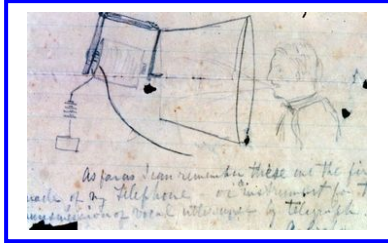 As far as I can remember these are the fir
made of my Telephone or instrument for t
transmission of vocal utterances by telegraph